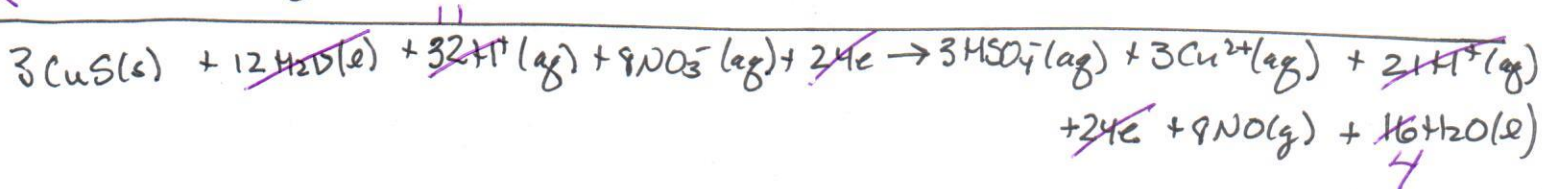 11
3 CuS(s) + 12 H₂O(l) + 32 H⁺(aq) + 8NO₃⁻(aq) + 24e → 3 HSO₄⁻(aq) + 3 Cu²⁺(aq) + 21 H⁺(aq)
+24e + 8NO(g) + 16 H₂O(l)
4